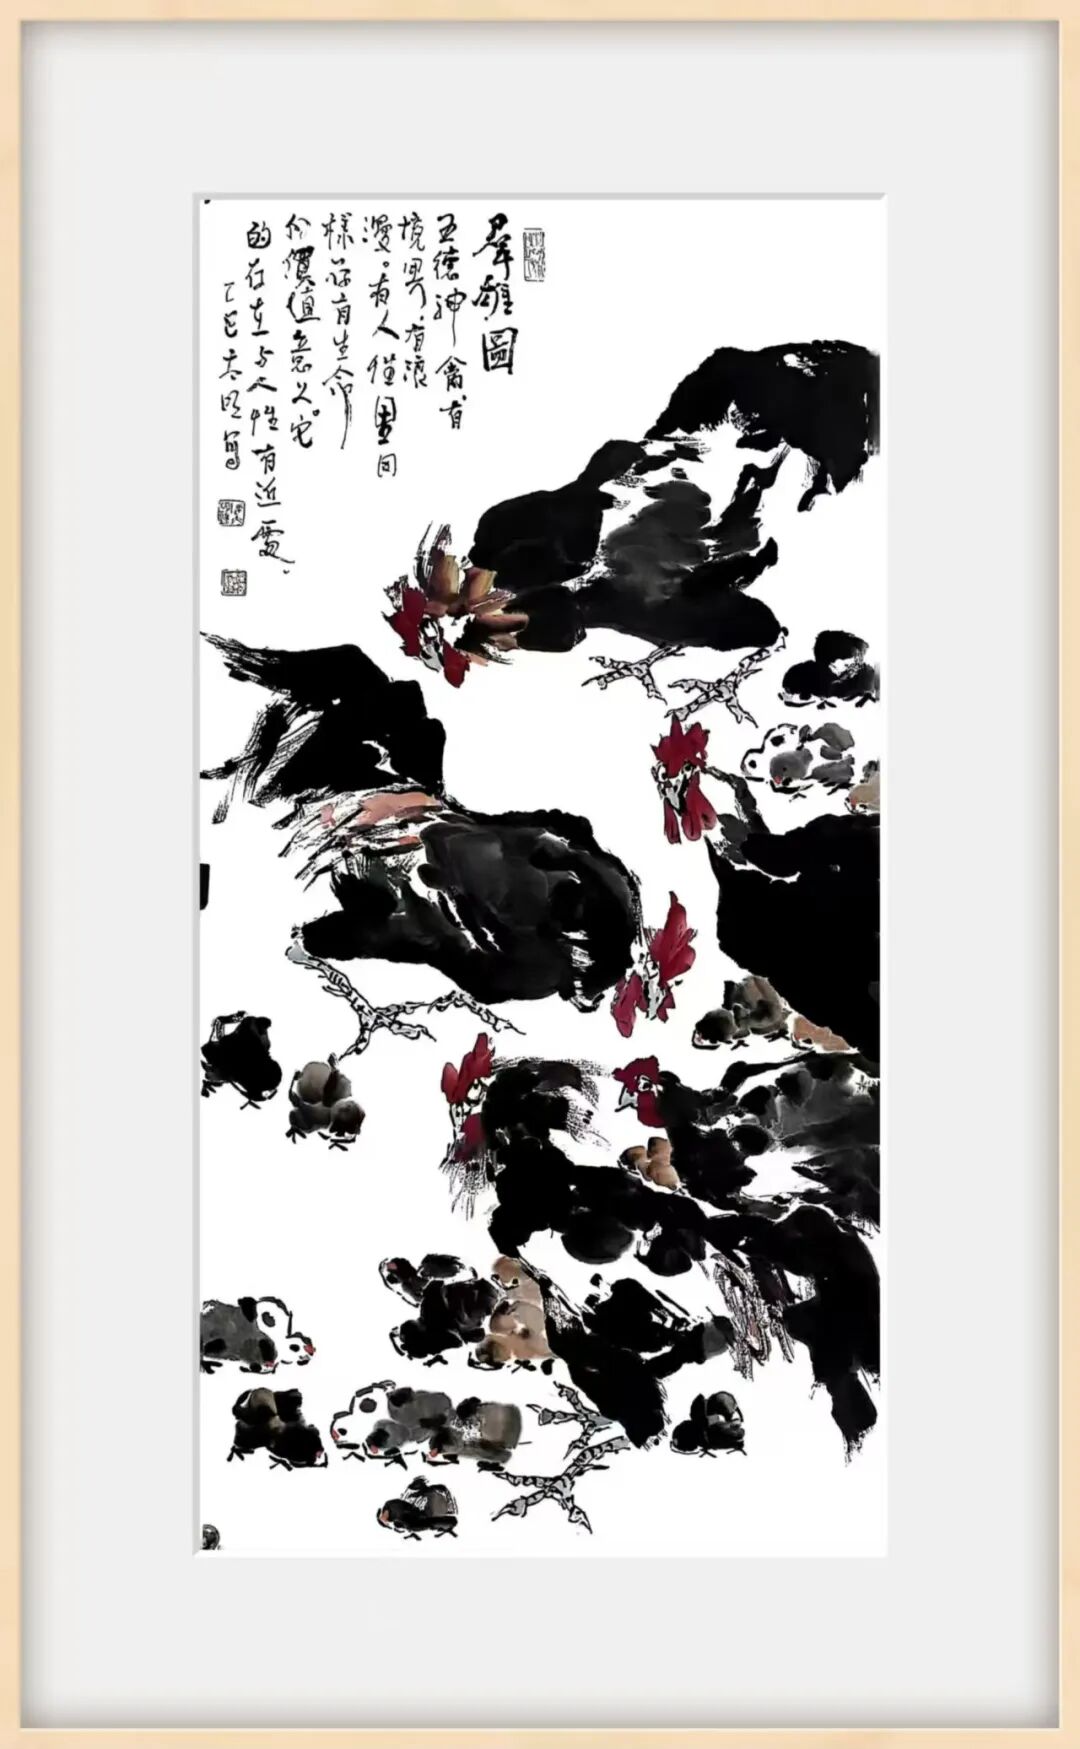 羣雄圖
五德神禽有
境界有浪
漫。有人同
樣有生命
價值意义。它
的存在与人性有近處
乙巳寫